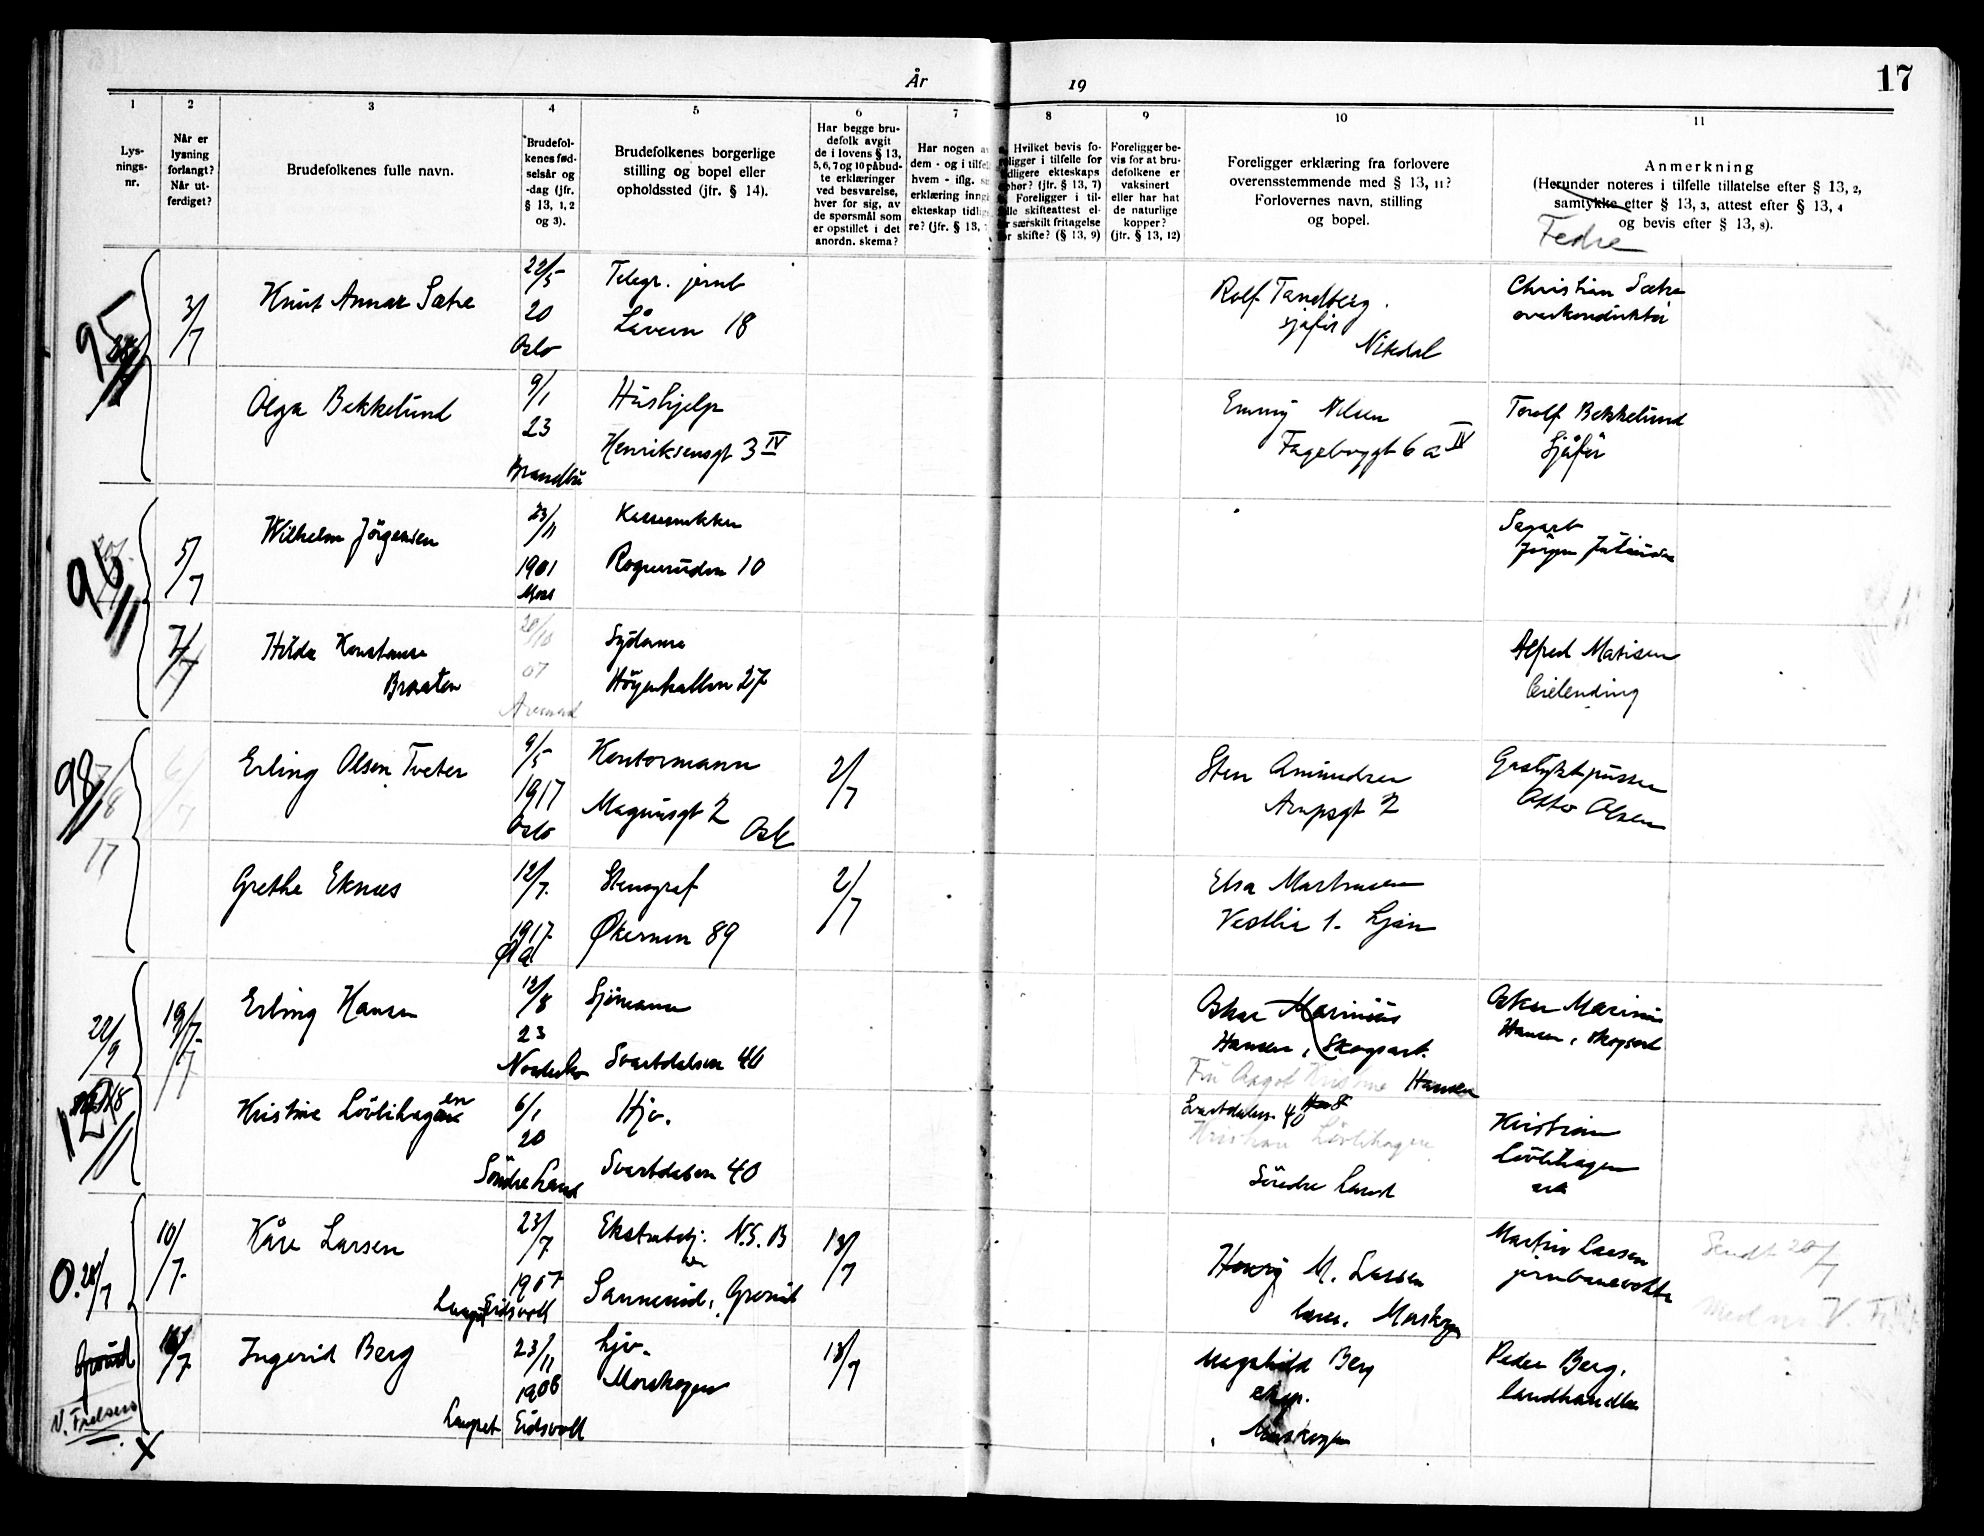 År 19
17
1
Lys-
nings-
nr.
2
Når er
lysning
forlangt?
Når ut-
ferdiget?
3
Brudefolkenes fulle navn.
4
Brudefol-
kenes fød-
selsår og
-dag (jfr.
§ 13, 1, 2
og 3).
5
Brudefolkenes borgerlige
stilling og bopel eller
opholdssted (jfr. § 14).
6
Har begge bru-
defolk avgit
de i lovens § 13,
5, 6, 7 og 10 påbud-
te erklæringer
ved besvarelse,
hver for sig, av
de spørsmål som
er opstillet i det
anordn. skema?
7
Har nogen
dem - og i tilfel
hvem - iflg.
erklæring inng
ekteskap tidlig
re? (jfr. § 13,
8
Hvilket bevis fo-
religger i tilfelle for
idligere ekteskaps
ophør? (jfr. § 13, 7)
Foreligger i til-
elle skifteattest el-
er særskilt fritagelse
or skifte? (§ 13, 9)
9
Foreligger be-
vis for at bru-
defolkene er
vaksinert
eller har hat
de naturlige
kopper?
(jfr. § 13, 12)
10
Foreligger erklæring fra forlovere
overensstemmende med § 13, 11?
Forlovernes navn, stilling
og bopel.
11
Anmerkning
(Herunder noteres i tilfelle tillatelse efter § 13, 2,
samtykke efter § 13, 3, attest efter § 13, 4
og bevis efter § 13, 8).
Fedre
95
3/7
Knut Annar Sætre
22/5
20
Oslo
Telegr. jernb
Låvern 18
Rolf Tandberg.
sjåfør
Nitedal
Christian Sætre
overkonduktør
Olga Bekkelund
9/1
23
Brandbu
Hushjelp
Henriksensgt 3 IV
Emmy Nilsen
Fagebyggt 6 a IV
Torolf Bekkelund
Sjåfør
96
5/7
Wilhelm Jörgensen
23/11
1901
Moss
Rognerudvn 10
Sagarb
Jörgen
7/7
Hilda Konstanse
Braaten
28/10
07
Sydame
Höyenhallvn 27
Alfred Matisen
Leilending
98
6/7
17
Erling Olsen Tveter
9/5
1917
Oslo
Kontormann
Magnusgt 2 Oslo
2/7
Sten Amundsen
Arupsgt 2
Gaslyktpusser
Otto Olsen
Grethe Eknæs
12/7
1917
Stenograf
Økernvn 89
2/7
Elsa Martinsen
Vestlia 1. Ljan
22/9
121
19/7
Erling Hansen
12/8
23
Sjömann
Svartdalsvn 40
Oskar Marinius
Hansen, Skogsarb.
Fru Aagot Kristine Hansen
Svartdalsv. 40
Oskar Marinius
Hansen, skogsarb
Kristine Lövlihagen
6/1
20
Söndre Land
Hjv.
Svartdalsvn 40
Kristian Lövlihagen
Söndre Land
Kristian
Lövlihagen
arb
0. 28/7
10/7
Kåre Larsen
23/7
1907
Langset Eidsvoll
Ekstrabetj. N.S.B
Sannerud, Grorud
13/7
M. Larsen
lærer, Morskogen
Martin Larsen
jernbanevokter
Sendt 20/7
Grorud
N. Frelsers
X
16/7
Ingerid Berg
23/11
1908
Langset Eidsvoll
hjv.
Morskogen
13/7
Magnhild Berg
eksp.
Morskogen
Peder Berg,
landhandler